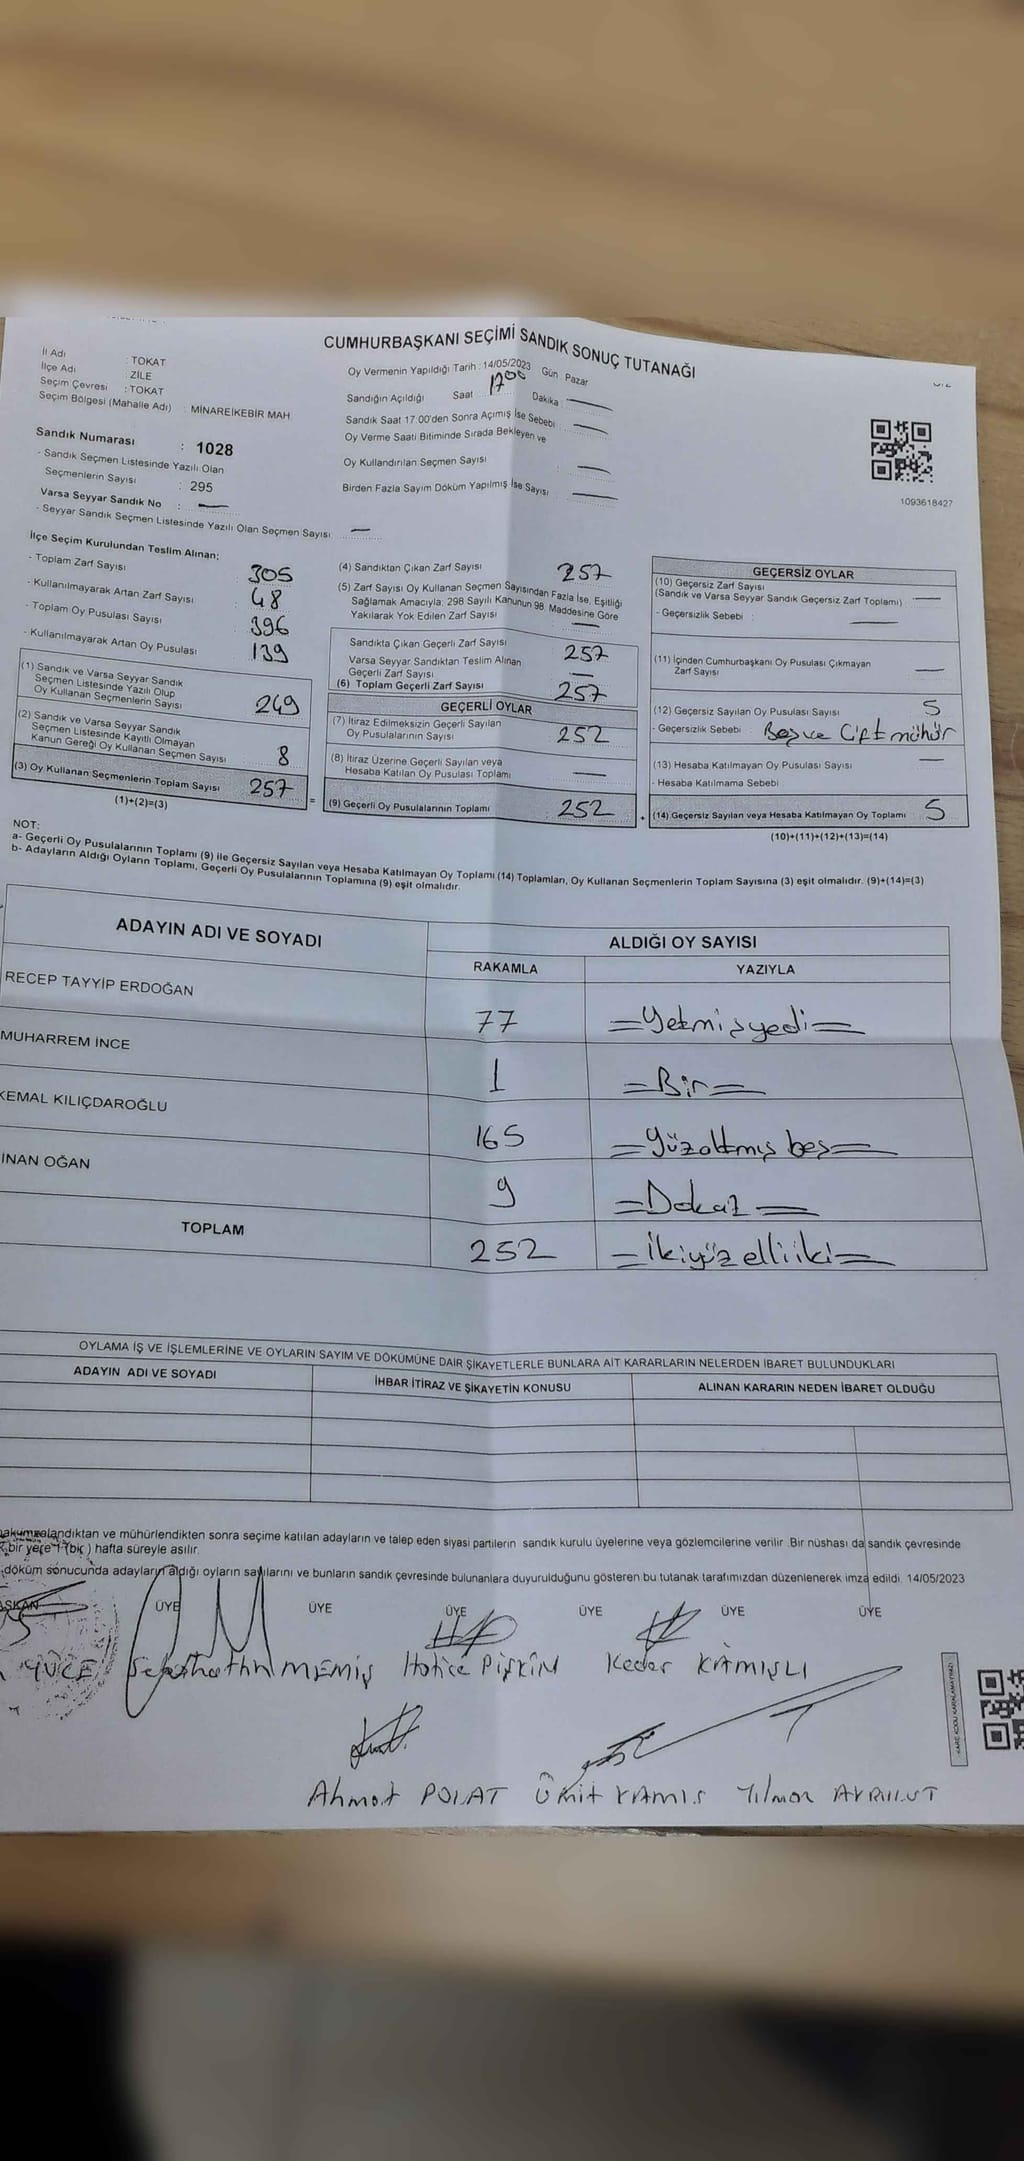 CUMHURBAŞKANI SEÇİMİ SANDIK SONUÇ TUTANAĞI
İl Adı : TOKAT
İlçe Adı : ZİLE
Seçim Çevresi : TOKAT
Seçim Bölgesi (Mahalle Adı) : MİNAREİKEBİR MAH
Sandık Numarası : 1028
- Sandık Seçmen Listesinde Yazılı Olan
Seçmenlerin Sayısı : 295
Varsa Seyyar Sandık No :
- Seyyar Sandık Seçmen Listesinde Yazılı Olan Seçmen Sayısı :
Oy Vermenin Yapıldığı Tarih : 14/05/2023 Gün Pazar
Sandığın Açıldığı Saat 17 00 Dakika :
Sandık Saat 17.00'den Sonra Açımış İse Sebebi :
Oy Verme Saati Bitiminde Sırada Bekleyen ve
Oy Kullandırılan Seçmen Sayısı :
Birden Fazla Sayım Döküm Yapılmış İse Sayısı :
1093618427
İlçe Seçim Kurulundan Teslim Alınan:
- Toplam Zarf Sayısı : 305
- Kullanılmayarak Artan Zarf Sayısı : 48
- Toplam Oy Pusulası Sayısı : 396
- Kullanılmayarak Artan Oy Pusulası : 139
(1) Sandık ve Varsa Seyyar Sandık
Seçmen Listesinde Yazılı Olup
Oy Kullanan Seçmenlerin Sayısı 249
(2) Sandık ve Varsa Seyyar Sandık
Seçmen Listesinde Kayıtlı Olmayan
Kanun Gereği Oy Kullanan Seçmen Sayısı 8
(3) Oy Kullanan Seçmenlerin Toplam Sayısı 257
(1)+(2)=(3)
=
(4) Sandıktan Çıkan Zarf Sayısı 257
(5) Zarf Sayısı Oy Kullanan Seçmen Sayısından Fazla İse, Eşitliği
Sağlamak Amacıyla; 298 Sayılı Kanunun 98. Maddesine Göre
Yakılarak Yok Edilen Zarf Sayısı :
Sandıkta Çıkan Geçerli Zarf Sayısı 257
Varsa Seyyar Sandıktan Teslim Alınan
Geçerli Zarf Sayısı
(6) Toplam Geçerli Zarf Sayısı 257
GEÇERLİ OYLAR
(7) İtiraz Edilmeksizin Geçerli Sayılan
Oy Pusulalarının Sayısı 252
(8) İtiraz Üzerine Geçerli Sayılan veya
Hesaba Katılan Oy Pusulası Toplamı
(9) Geçerli Oy Pusulalarının Toplamı 252
+
GEÇERSİZ OYLAR
(10) Geçersiz Zarf Sayısı
(Sandık ve Varsa Seyyar Sandık Geçersiz Zarf Toplamı)
- Geçersizlik Sebebi :
(11) İçinden Cumhurbaşkanı Oy Pusulası Çıkmayan
Zarf Sayısı
(12) Geçersiz Sayılan Oy Pusulası Sayısı 5
- Geçersizlik Sebebi Boş ve Çift mühür
(13) Hesaba Katılmayan Oy Pusulası Sayısı
- Hesaba Katılmama Sebebi
(14) Geçersiz Sayılan veya Hesaba Katılmayan Oy Toplamı 5
(10)+(11)+(12)+(13)=(14)
NOT:
a- Geçerli Oy Pusulalarının Toplamı (9) ile Geçersiz Sayılan veya Hesaba Katılmayan Oy Toplamı (14) Toplamları, Oy Kullanan Seçmenlerin Toplam Sayısına (3) eşit olmalıdır. (9)+(14)=(3)
b- Adayların Aldığı Oyların Toplamı, Geçerli Oy Pusulalarının Toplamına (9) eşit olmalıdır.
ADAYIN ADI VE SOYADI ALDIĞI OY SAYISI
RAKAMLA YAZIYLA
RECEP TAYYİP ERDOĞAN 77 =Yetmişyedi=
MUHARREM İNCE 1 =Bir=
KEMAL KILIÇDAROĞLU 165 =Yüzaltmış beş=
İNAN OĞAN 9 =Dokuz=
TOPLAM 252 =İkiyüz elliiki=
OYLAMA İŞ VE İŞLEMLERİNE VE OYLARIN SAYIM VE DÖKÜMÜNE DAİR ŞİKAYETLERLE BUNLARA AİT KARARLARIN NELERDEN İBARET BULUNDUKLARI
ADAYIN ADI VE SOYADI İHBAR İTİRAZ VE ŞİKAYETİN KONUSU ALINAN KARARIN NEDEN İBARET OLDUĞU
imzalandıktan ve mühürlendikten sonra seçime katılan adayların ve talep eden siyasi partilerin sandık kurulu üyelerine veya gözlemcilerine verilir. Bir nüshası da sandık çevresinde
bir yere 1 (bir) hafta süreyle asılır.
döküm sonucunda adayların aldığı oyların sayılarını ve bunların sandık çevresinde bulunanlara duyurulduğunu gösteren bu tutanak tarafımızdan düzenlenerek imza edildi. 14/05/2023
BAŞKAN ÜYE ÜYE ÜYE ÜYE ÜYE ÜYE
YÜCE MEMİŞ Hatice PİŞKİN Keder KAMIŞLI
Ahmet POLAT Ümit KAMIŞ Yılmaz
KARE KODU KARALAMAYINIZ!